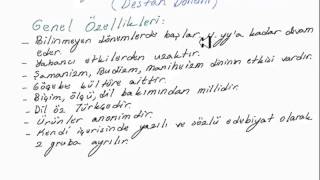 (Destan Dönemi)
Genel Özellikleri:
- Bilinmeyen dönemlerde başlar, yy'a kadar devam
eder.
- Yabancı etkilerden uzaktır.
- Şamanizm, Budizm, manihaizm dininin etkisi vardır.
- Göçebe kültüre aittir.
- Biçim, ölçü, dil bakımından millidir.
- Dil öz Türkçedir.
- Ürünler anonimdir.
- Kendi içerisinde yazılı ve sözlü edebiyat olarak
2 gruba ayrılır.